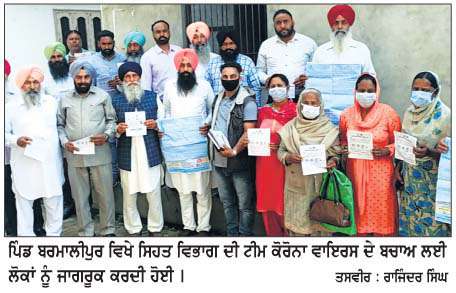 ਪਿੰਡ ਬਰਮਾਲੀਪੁਰ ਵਿਖੇ ਸਿਹਤ ਵਿਭਾਗ ਦੀ ਟੀਮ ਕੋਰੋਨਾ ਵਾਇਰਸ ਦੇ ਬਚਾਅ ਲਈ
ਲੋਕਾਂ ਨੂੰ ਜਾਗਰੂਕ ਕਰਦੀ ਹੋਈ । ਤਸਵੀਰ : ਰਾਜਿੰਦਰ ਸਿੰਘ